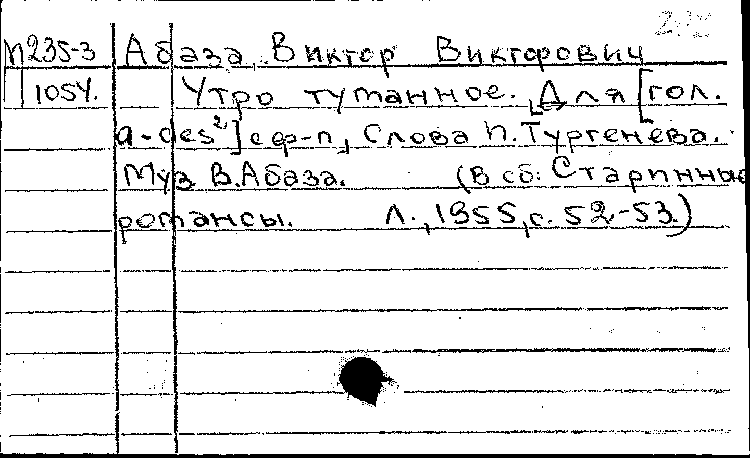 П235-3 Абаза, Виктор Викторович
1054. Утро туманное. Для [гол.
a-des²] с ф-п, Слова П.Тургенева.
Муз В.Абаза. (В сб: Старинные
романсы. Л., 1955, с. 52-53.)